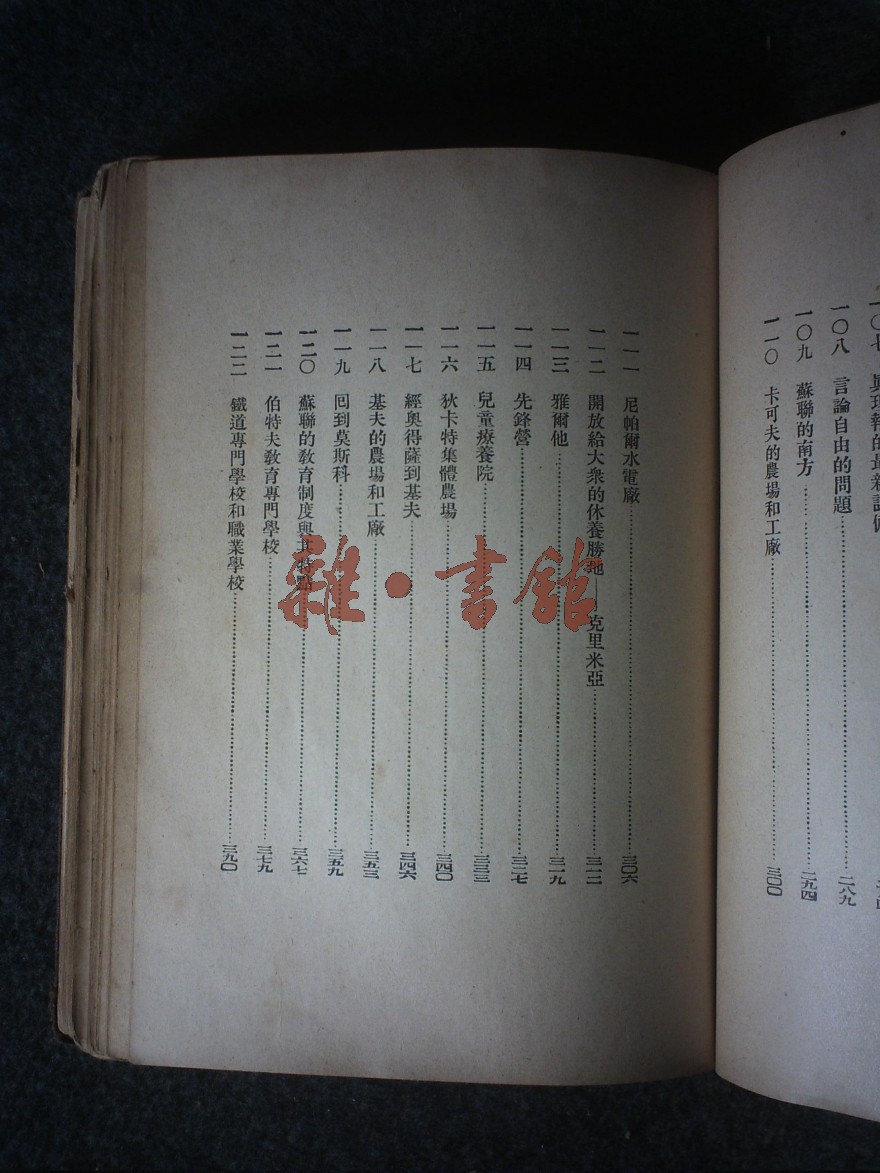 一〇七 眞理報的最新設備
一〇八 言論自由的問題……二八九
一〇九 蘇聯的南方……二九四
一一〇 卡可夫的農場和工廠……三〇〇
一一一 尼帕爾水電廠……三〇六
一一二 開放給大衆的休養勝地——克里米亞……三一二
一一三 雅爾他……三一九
一一四 先鋒營……三二七
一一五 兒童療養院……三三三
一一六 狄卡特集體農場……三四〇
一一七 經奧得薩到基夫……三四六
一一八 基夫的農場和工廠……三五三
一一九 回到莫斯科……三五九
一二〇 蘇聯的敎育制度與其特點……三六七
一二一 伯特夫敎育專門學校……三七九
一二二 鐵道專門學校和職業學校……三九〇
雜·書館